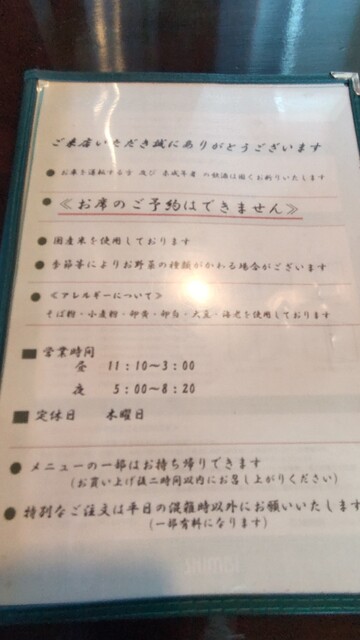 ご来店いただき誠にありがとうございます
●お車を運転する方 及び 未成年者 の飲酒は固くお断りいたします
●≪お席のご予約はできません≫
●国産米を使用しております
●季節等によりお野菜の種類がかわる場合がございます
●≪アレルギーについて≫
そば粉・小麦粉・卵黄・卵白・大豆・海老を使用しております
■営業時間
昼 11:10〜3:00
夜 5:00〜8:20
■定休日 木曜日
●メニューの一部はお持ち帰りできます
(お買い上げ後二時間以内にお召し上がりください)
●特別なご注文は平日の混雑時以外にお願いいたします
(一部有料になります)